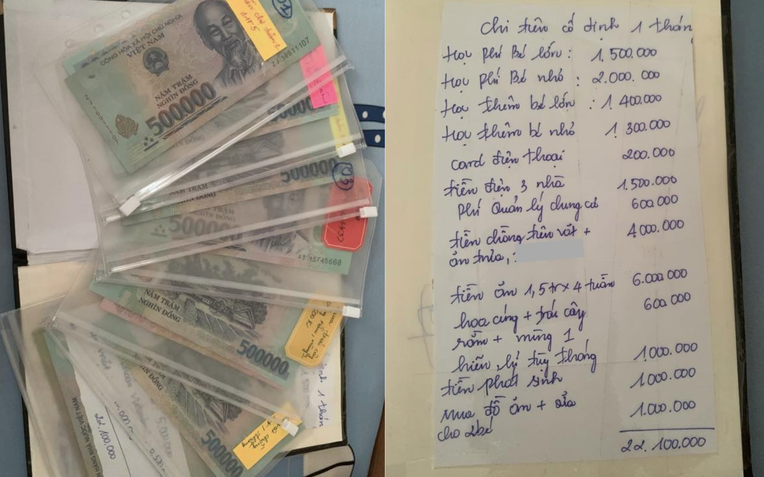 CỘNG HÒA XÃ HỘI
VIỆT NAM
NĂM TRĂM
NGHÌN ĐỒNG
500.000
500000
NĂM TRĂM
NGHÌN ĐỒNG
500000
NĂM TRĂM
NGHÌN ĐỒNG
500000
22.100.000
Chi tiền cố định 1 tháng
Học phí bé lớn : 1.500.000
Học phí Bé nhỏ : 2.000.000
Học thêm bé lớn : 1.400.000
Học thêm bé nhỏ 1.300.000
card điện thoại 200.000
tiền điện 3 nhà 1.500.000
phí quản lý chung cư 600.000
tiền chồng tiêu vặt + 4.000.000
ăn trưa :
tiền ăn 1,5tr x 4 tuần 6.000.000
hoa cúng + trái cây 600.000
rằm + mùng 1
hiếu hỷ tùy tháng 1.000.000
tiền phát sinh 1.000.000
mua đồ ăn + sữa 1.000.000
cho 2 bé
22.100.000